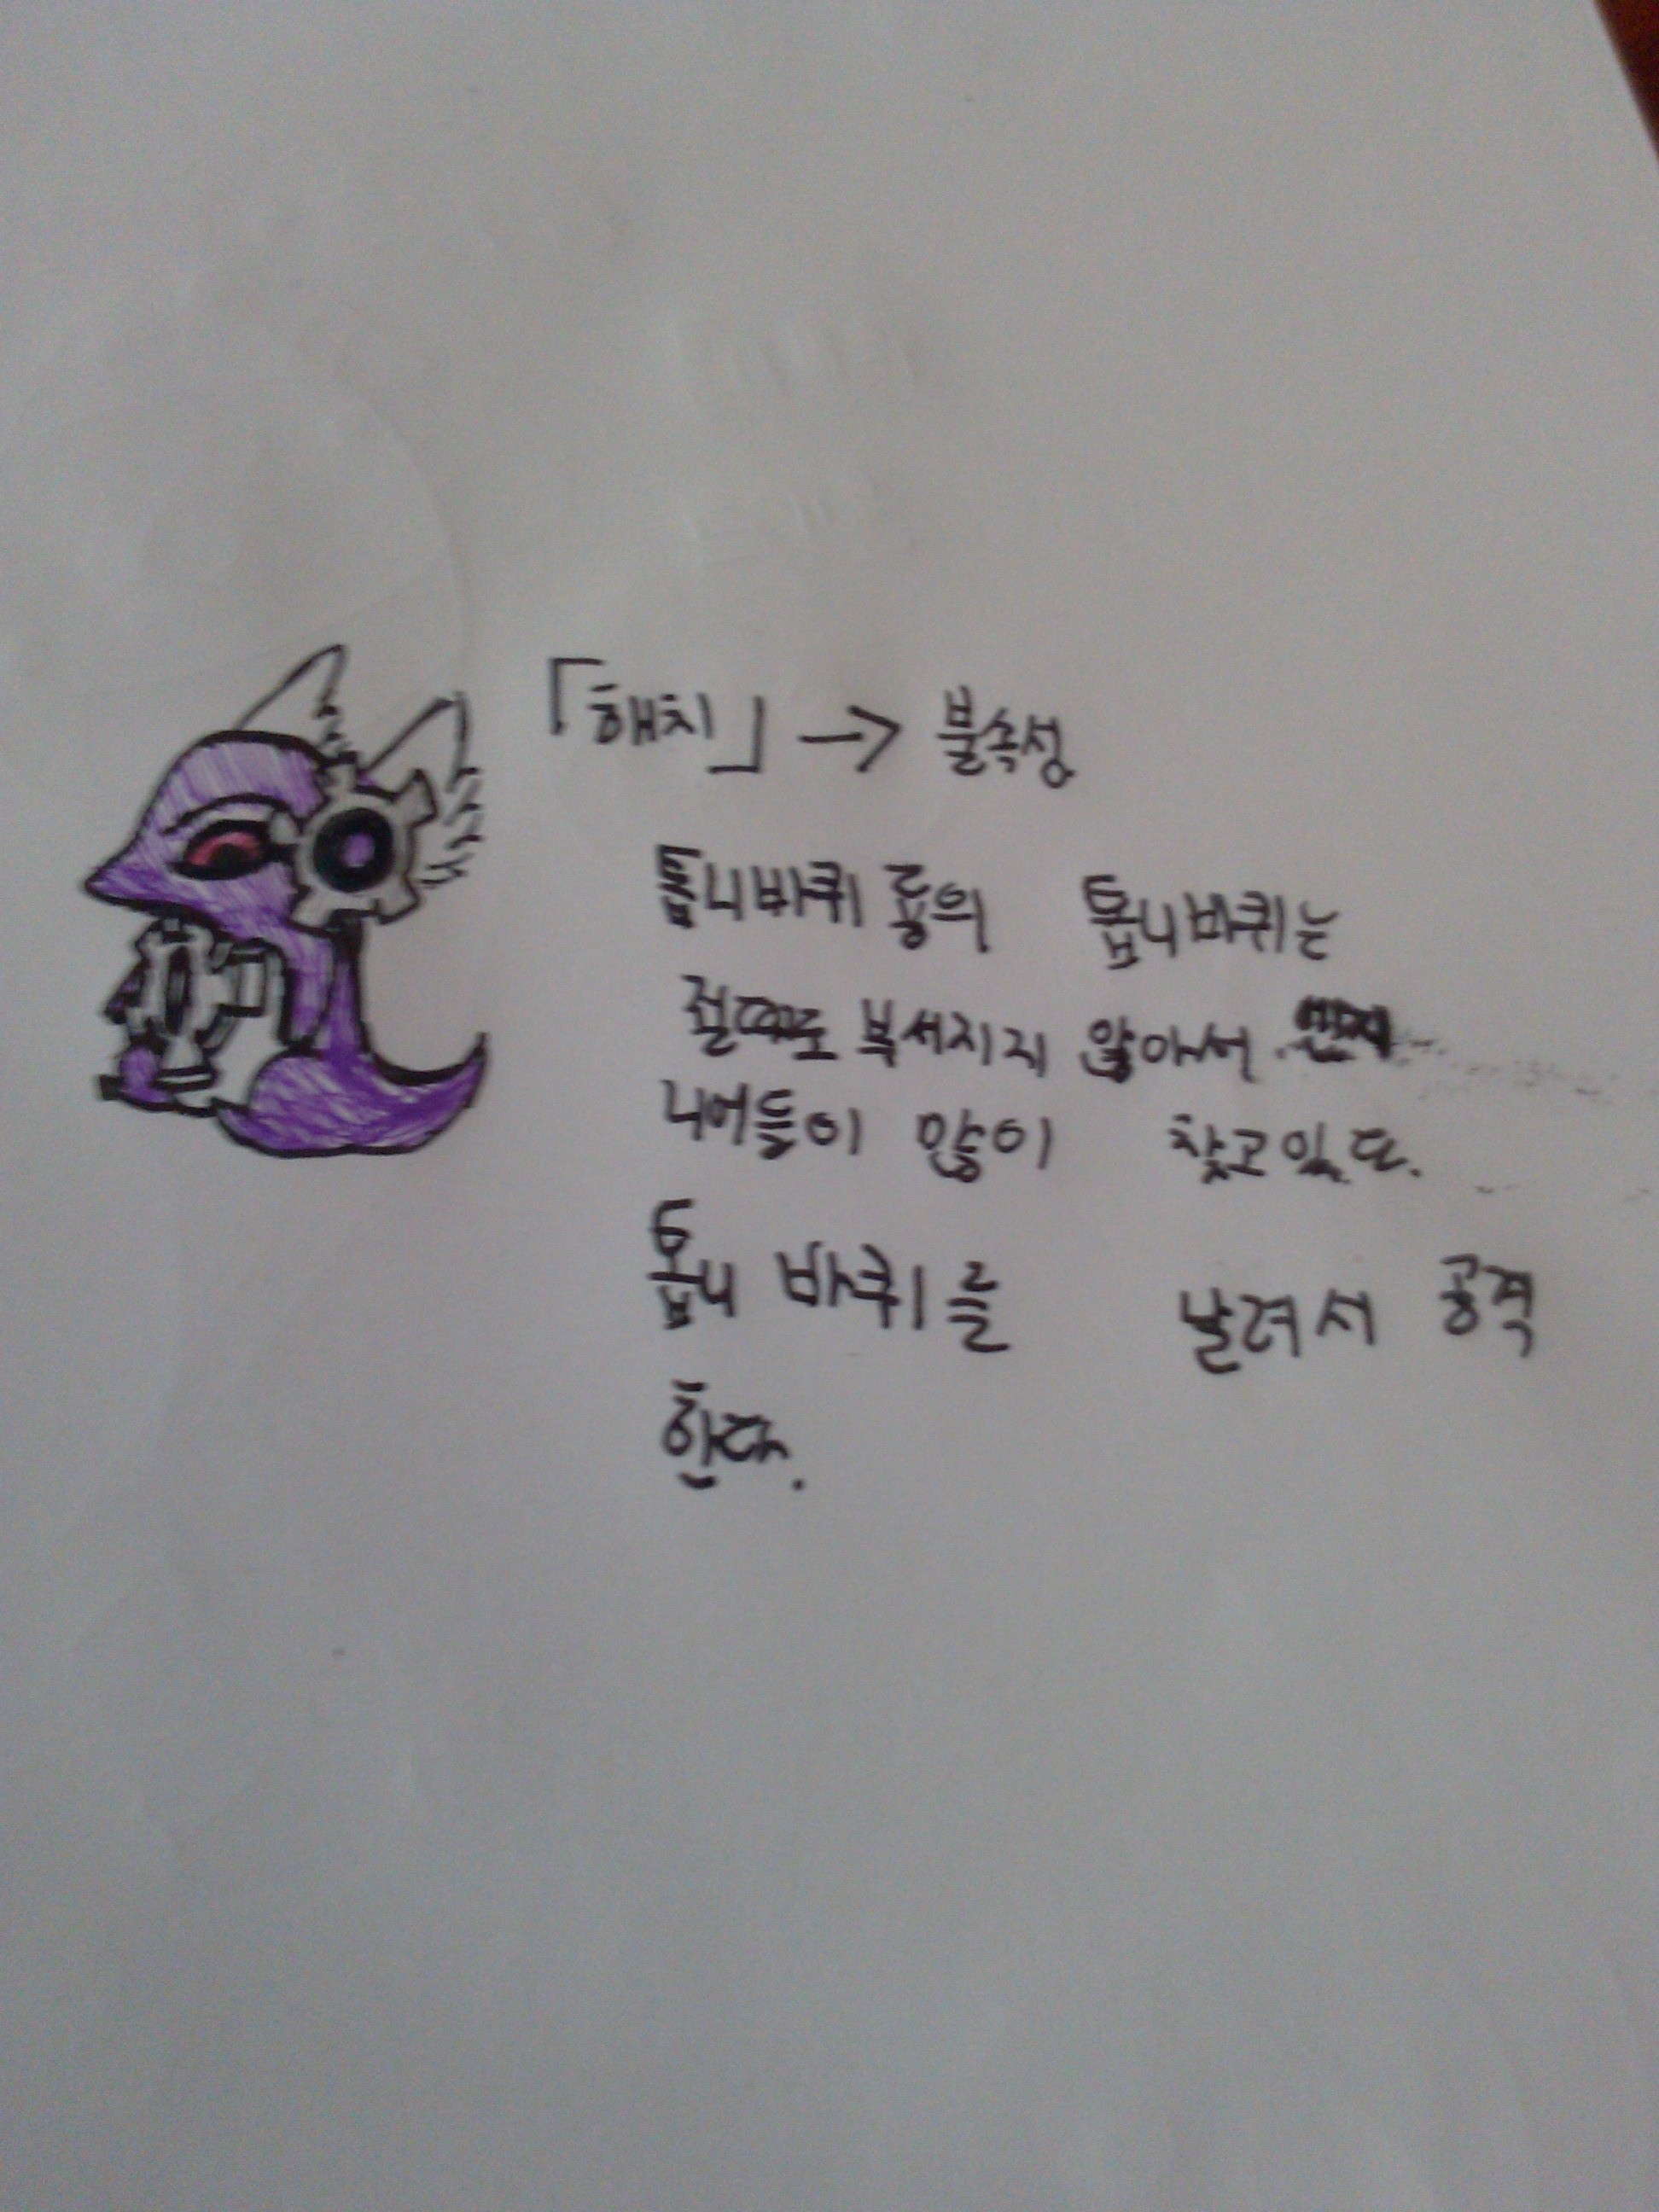 「해치」 → 불속성
톱니바퀴 룡의 톱니바퀴는
절대로 부서지지 않아서
니어들이 많이 찾고있다.
톱니 바퀴를 날려서 공격
한다.